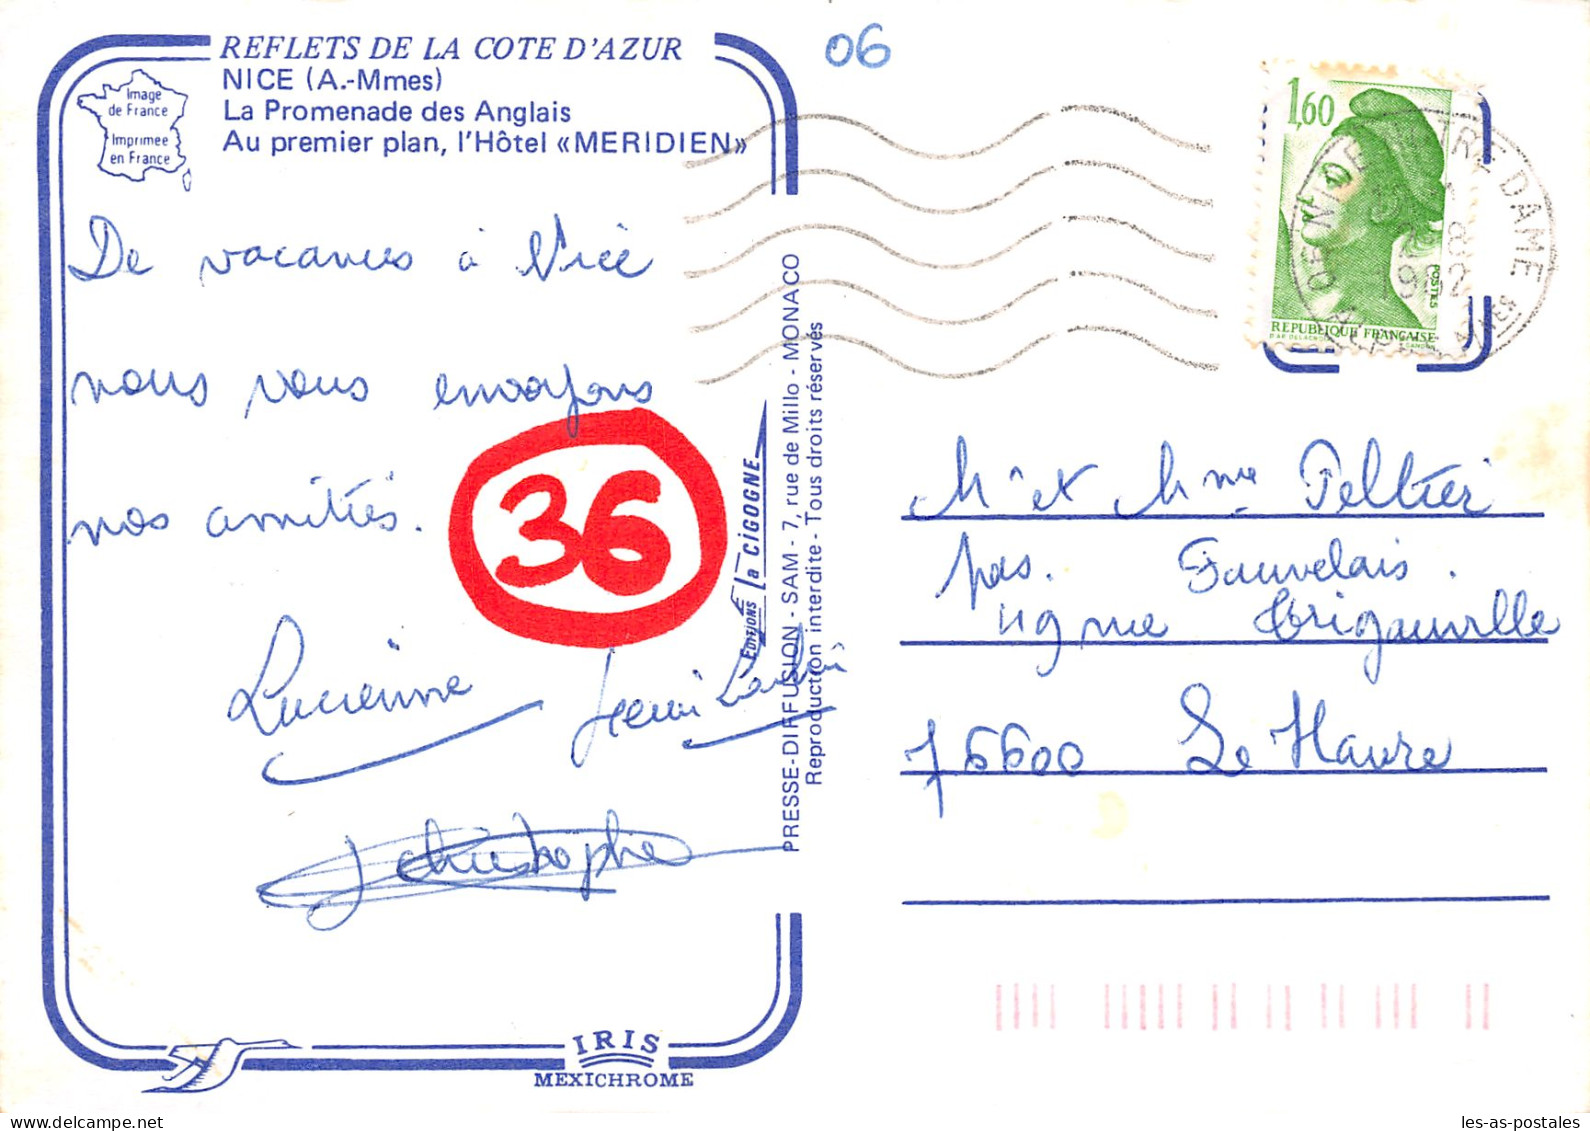 REFLETS DE LA COTE D'AZUR
NICE (A.-Mmes)
La Promenade des Anglais
Au premier plan, l'Hôtel «MERIDIEN»
Image
de France
Imprimée
en France
06
1,60
POSTES
REPUBLIQUE FRANÇAISE
06 NICE NOTRE DAME
1982
De vacances à Nice
nous vous envoyons
nos amitiés.
36
Lucienne
Christophe
EDITIONS La CIGOGNE
PRESSE-DIFFUSION - SAM - 7, rue de Millo - MONACO
Reproduction interdite - Tous droits réservés
Mr et Mme Peltier
pas. Fauvelais.
119 rue Trigauville
76600 Le Havre
IRIS
MEXICHROME
les-as-postales